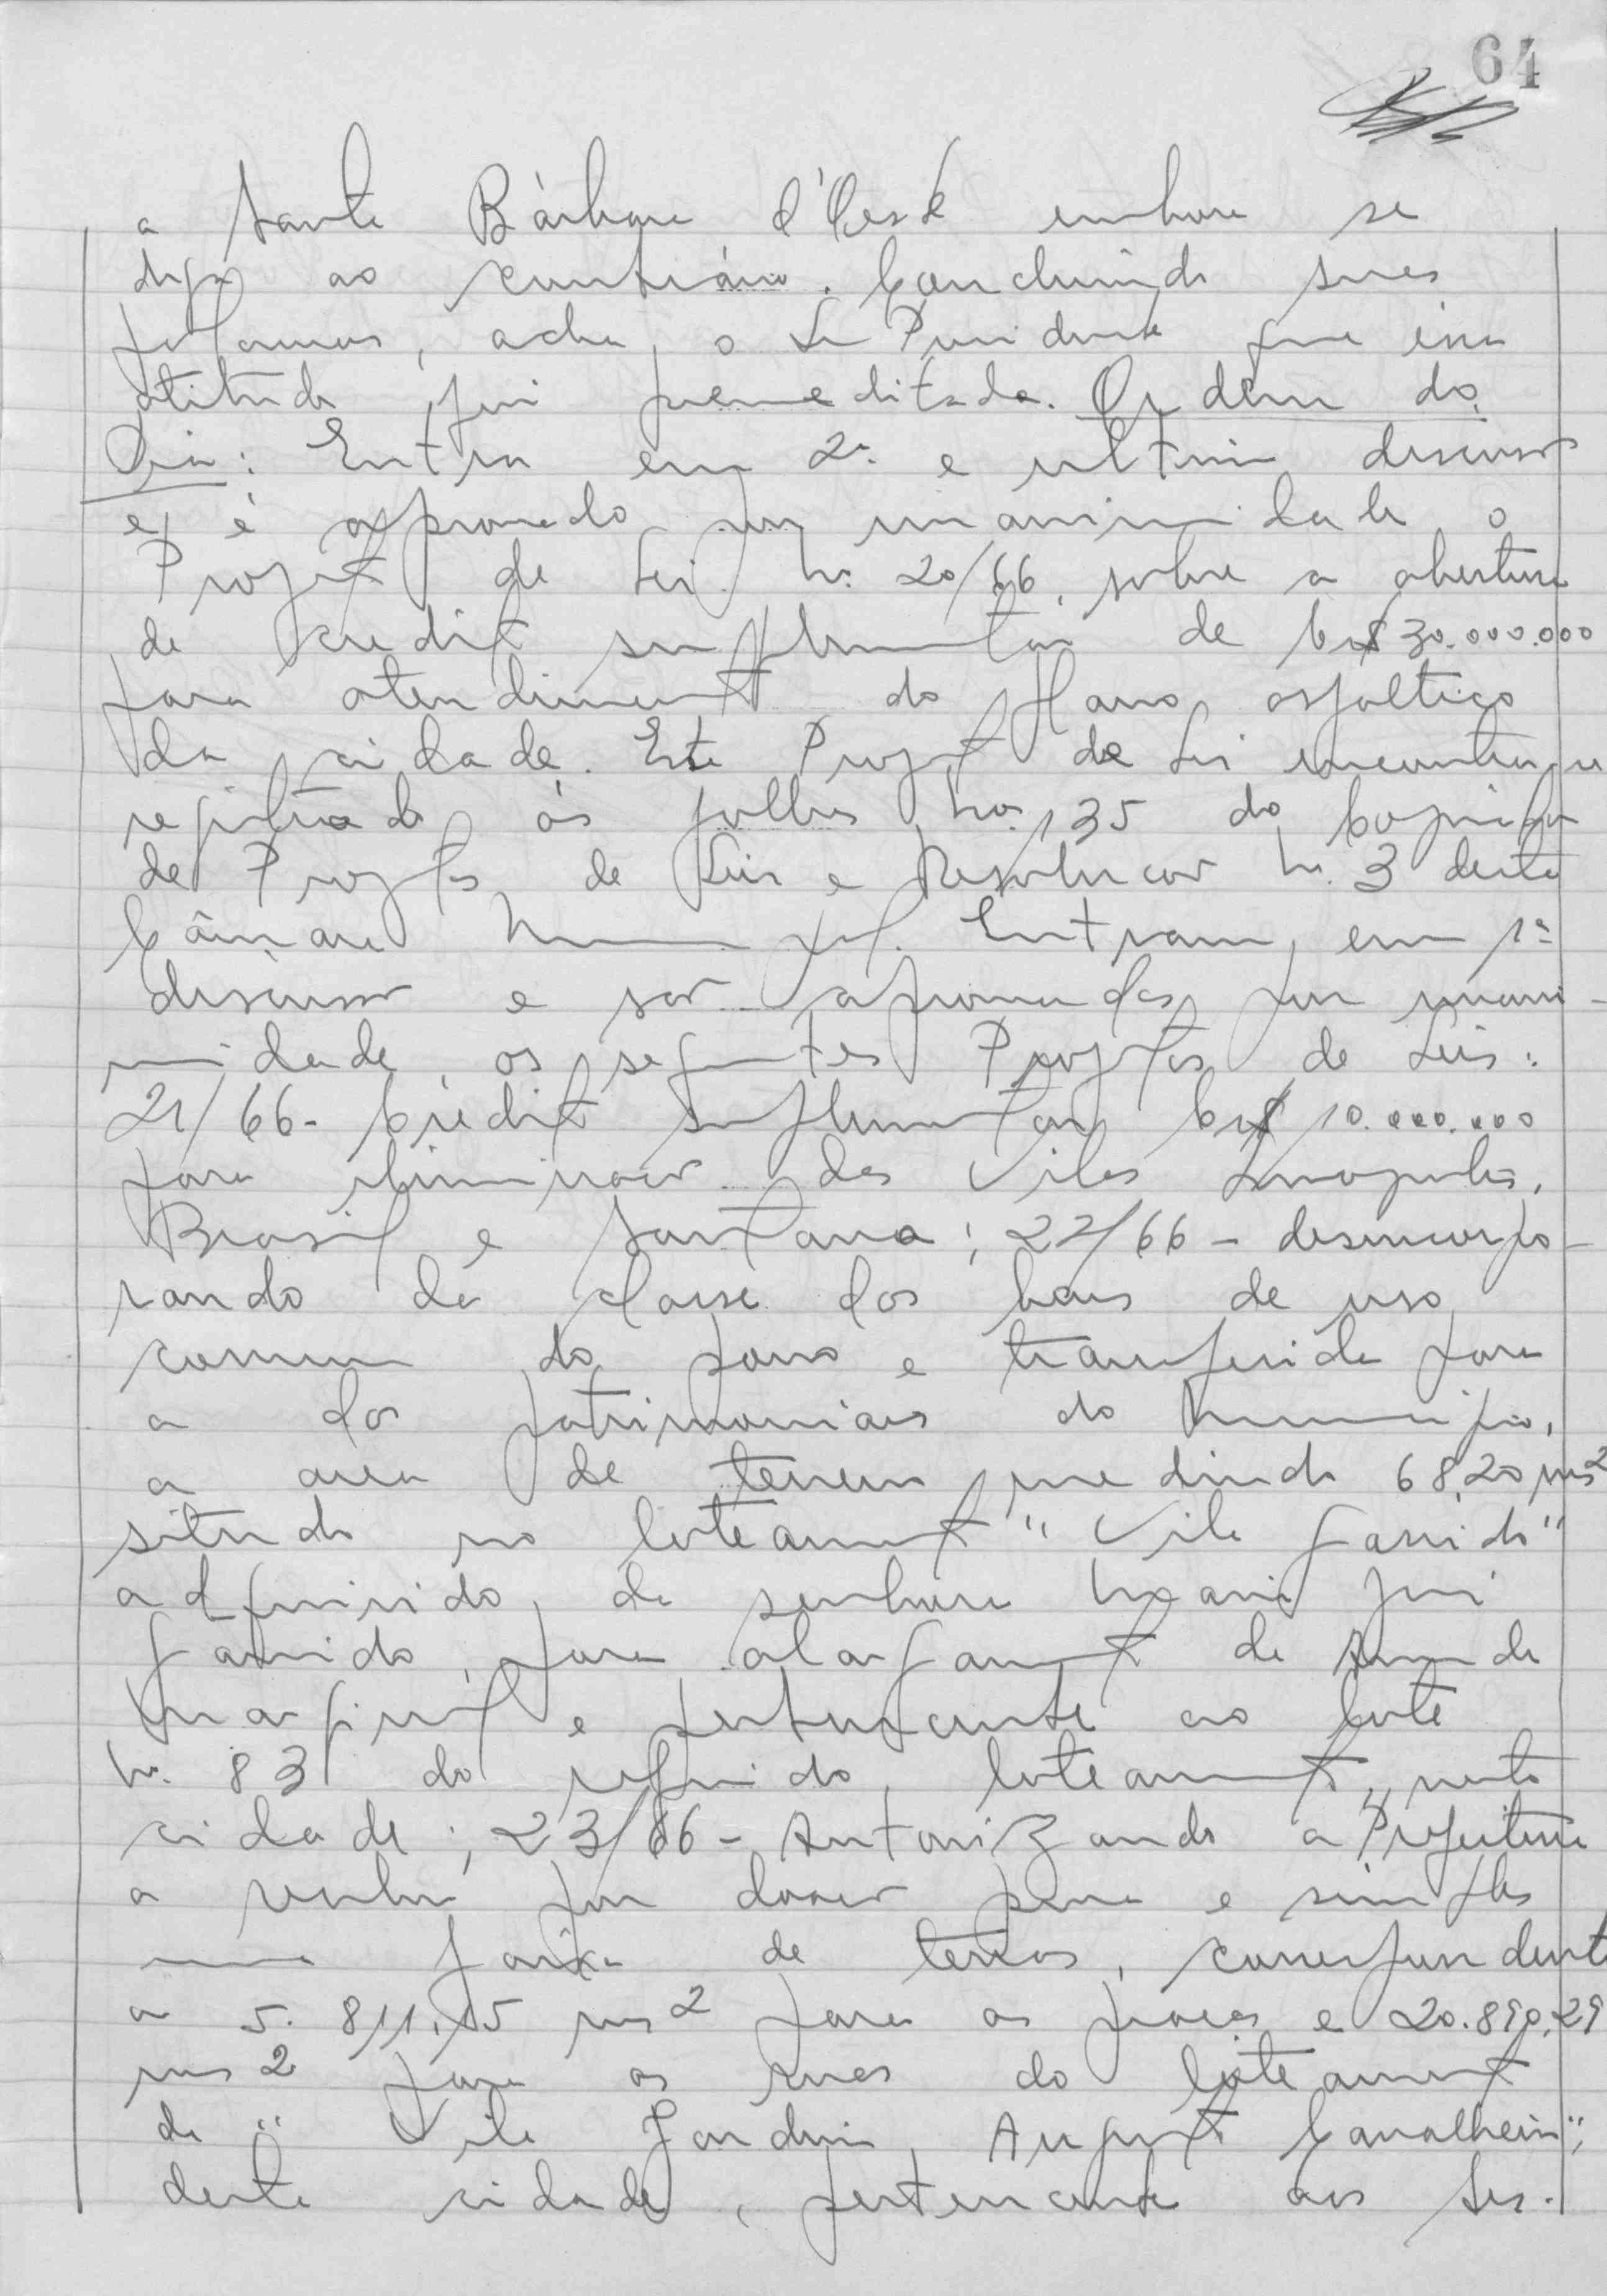 64
a Santa Bárbara d'Oeste embora se
diga ao contrário. Concluindo suas
palavras, acha, o Sr Presidente que essa
atitude foi premeditada. Ordem do
Dia: Entra em 2ª e ultima discussão
e, é aprovado por unanimidade o
Projeto de Lei nº 20/66, sobre a abertura
de credito suplementar de Cr$ 30.000.000
para atendimento do plano asfaltico
da cidade. Este Projeto de Lei encontra-se
registrado ás folhas nos. 135 do Copiador
de Projetos de Leis e Resolucões nº 3 desta
Câmara Municipal. Entram, em 1ª
discussão e são aprovados por unani-
midade, os seguintes Projetos de Leis:
21/66 - Crédito Suplementar Cr$ 10.000.000
para iluminação das Vilas Linopolis,
Brasil e Santana; 22/66 - desincorpo-
rando da classe dos bens de uso
comum do povo e transferida para
a dos patrimoniais do Municipio,
a area de terreno medindo 68,20 ms2
situado no loteamento "Vila Garrido"
adquirido, da senhora Maria José
Garrido, para alargamento da Avenida
Marginal e pertencente ao lote
nº 83 do referido loteamento, nesta
cidade; 23/66 - Autorizando a Prefeitura
a receber por doação pura e simples
uma faixa de terras, correspondente
a 5.811,15 ms2 para as praças e 20.890,29
ms2 para as ruas do loteamento
da "Vila Jardim Augusto Cavalheiro",
desta cidade, pertencente aos Srs.